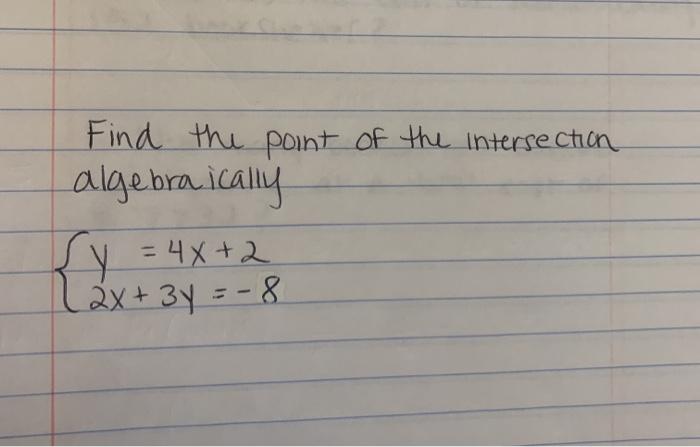 Find the point of the intersection
algebraically
y = 4x + 2
2x + 3y = - 8